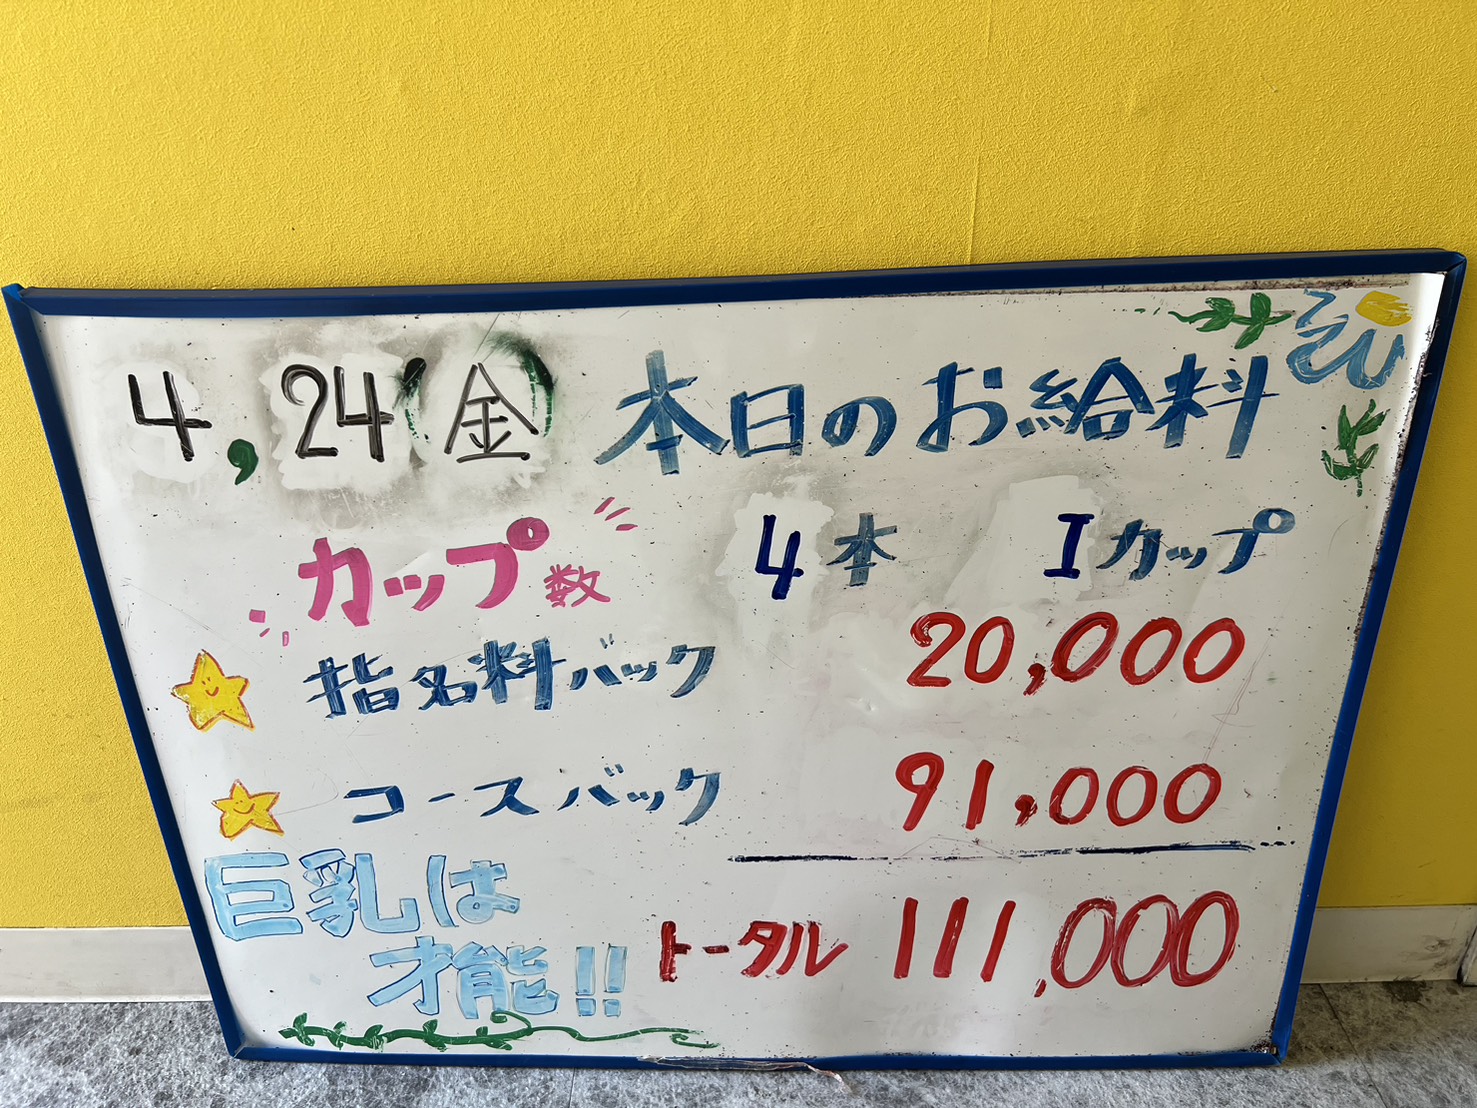 4,24(金) 本日のお給料
カップ数 4本 Iカップ
指名料バック 20,000
コースバック 91,000
巨乳は
才能!!
トータル 111,000